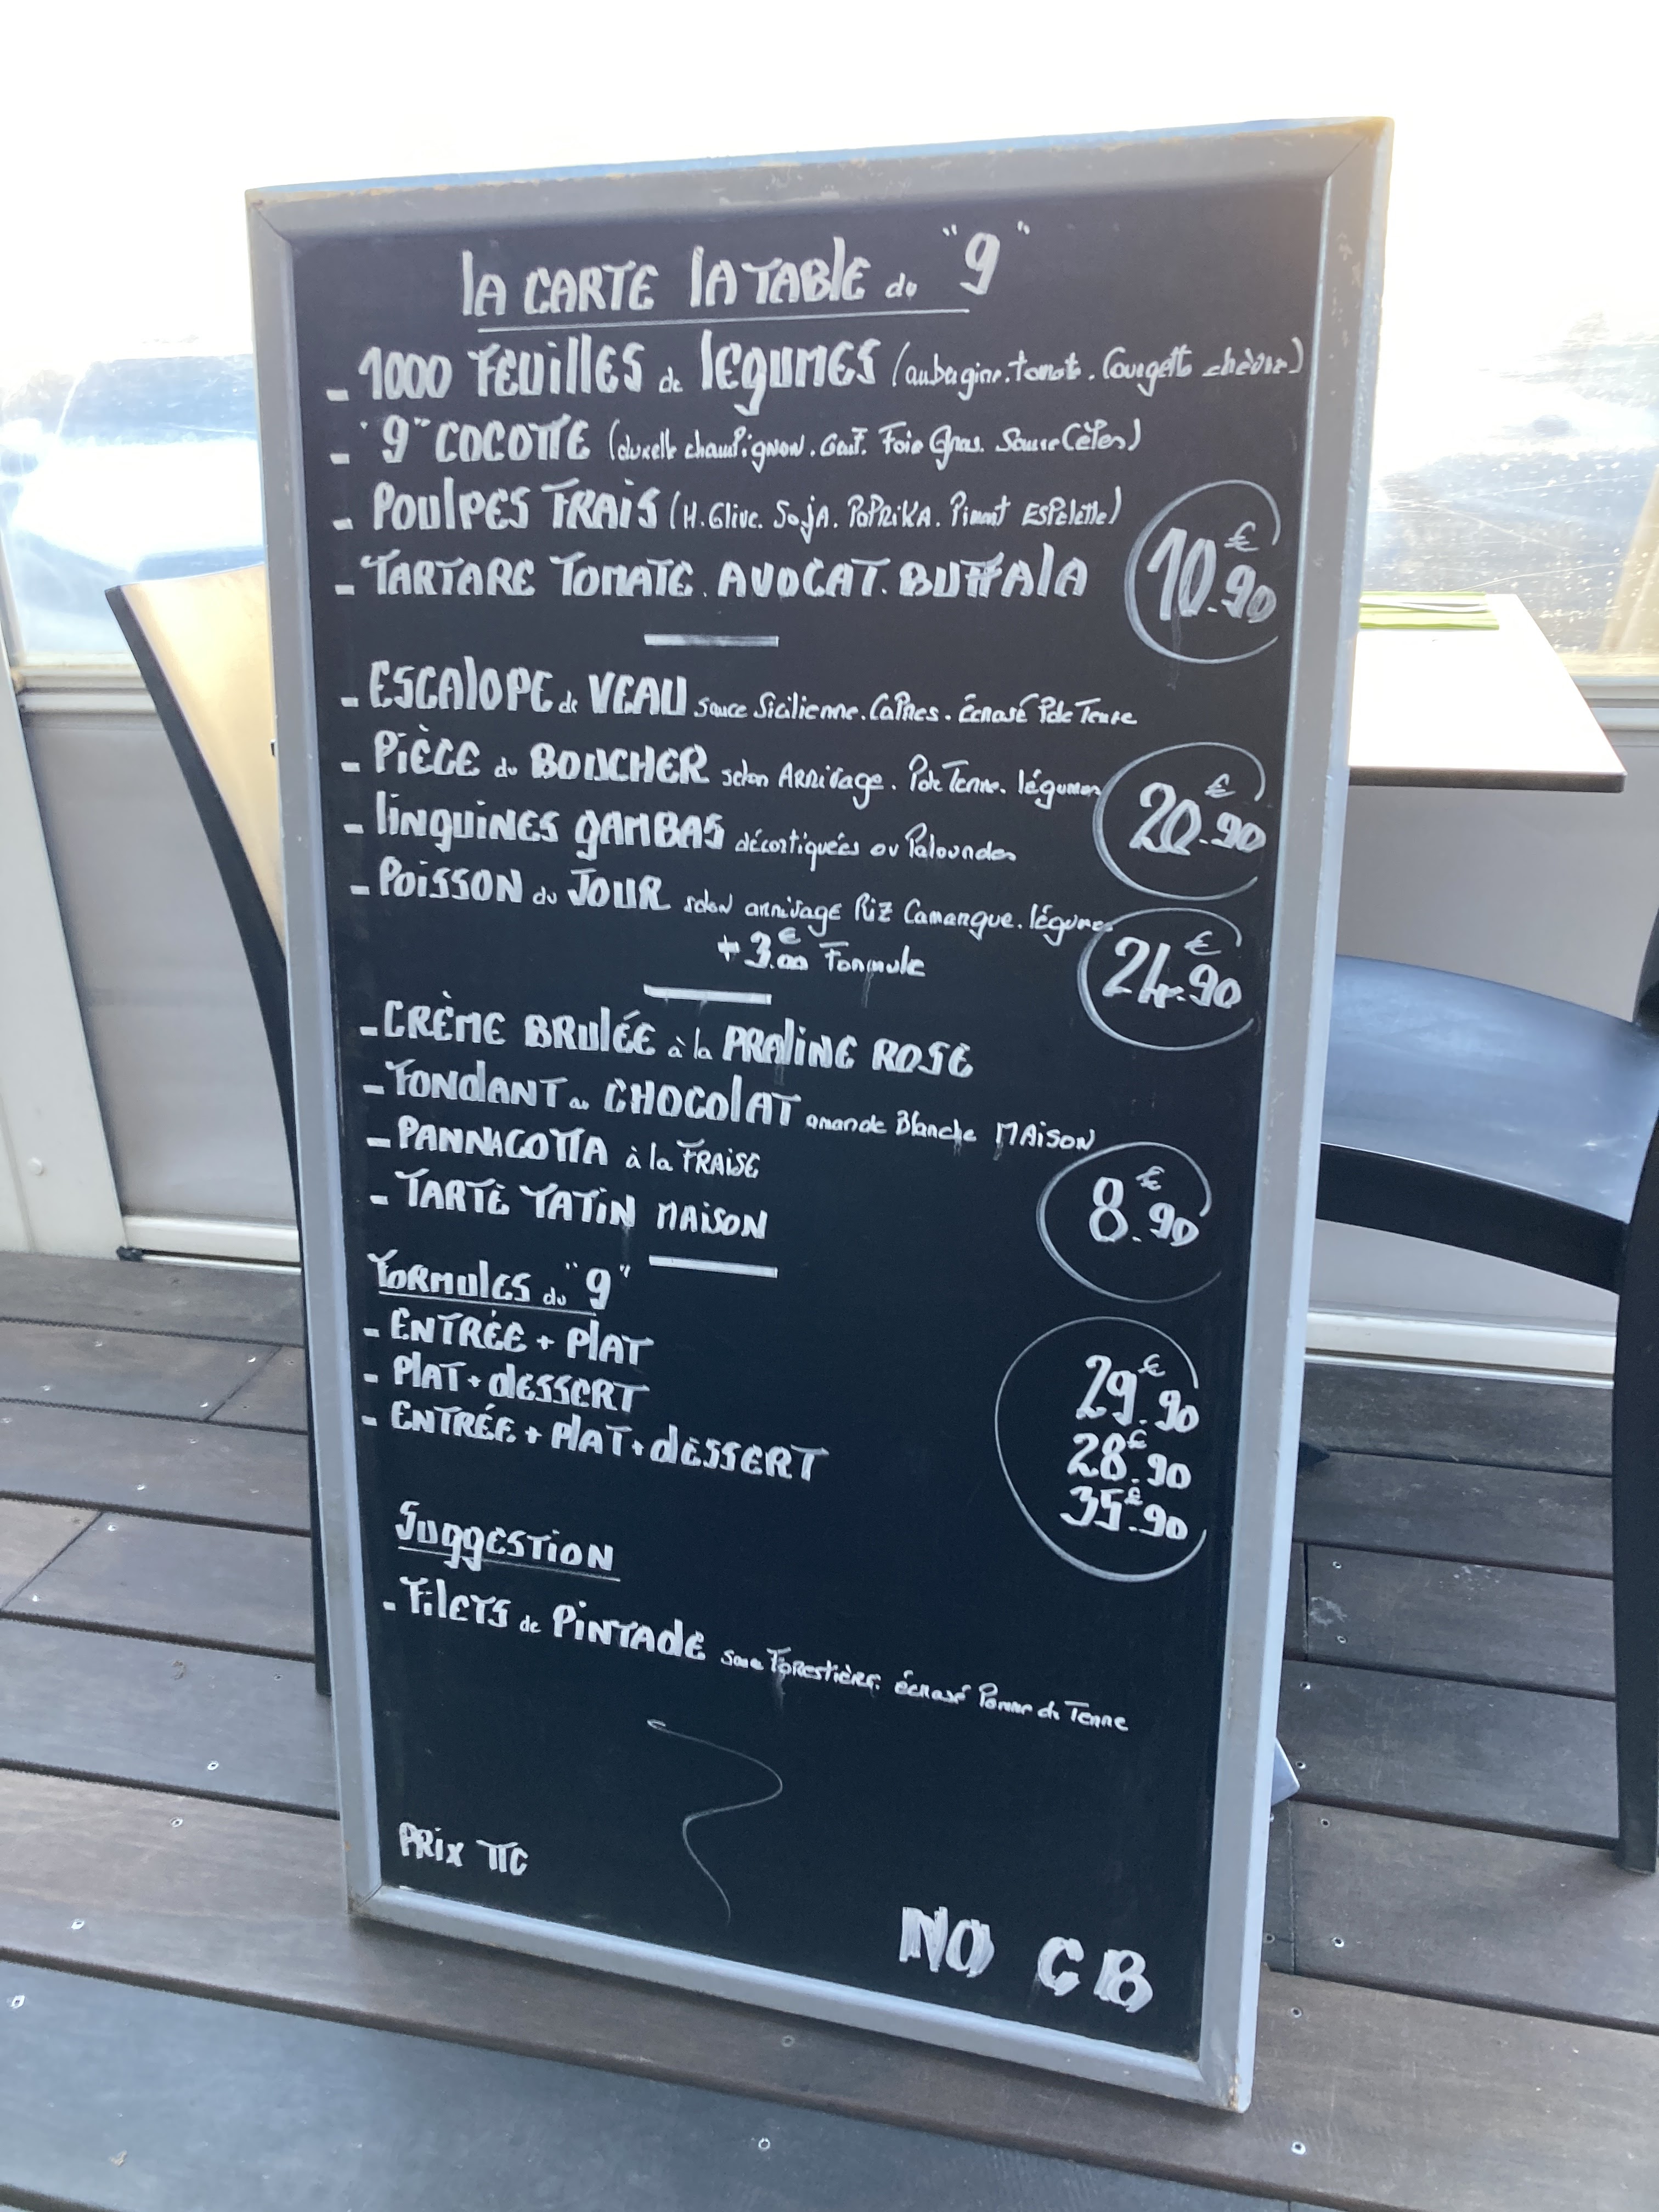 la CARTE la TABLE du "9"
- 1000 FEUILLES de légumes (aubergine. tomate. Courgette chèvre)
- "9" COCOTTE (duxelle champignon. Oeuf. Foie Gras. Sauce Cèpes)
- POULPES FRAIS (H. Olive. SojA. PAPRiKA. Piment ESPelette)
- TARTARE TOMATE. AVOCAT. BUFFAlA
10.90 €
- ESCAlOPE de VEAU sauce Sicilienne. CâPres. Écrasé P de Terre
- PiÈCE du BOUCHER selon Arrivage. P de Terre. légumes
20.90 €
- linguiNES gAMBAS décortiquées ou Palourdes
- POiSSON du JOUR selon arrivage Riz Camargue. légumes
+ 3.00 € Formule
24.90 €
- CRÈME BRUlÉE à la PRAliNE ROSE
- FONDANT au CHOCOlAT amande Blanche MAiSON
- PANNACOTTA à la FRAiSE
8.90 €
- TARTE TATiN MAiSON
FORMulES du "9"
- ENTRÉE + PlAT 29.90 €
- PlAT + dESSERT 28.90 €
- ENTRÉE + PlAT + dESSERT 35.90 €
SuggESTiON
- FilETS de PiNTAdE sauce Forestière. écrasé Pomme de Terre
PRix TTC
NO CB